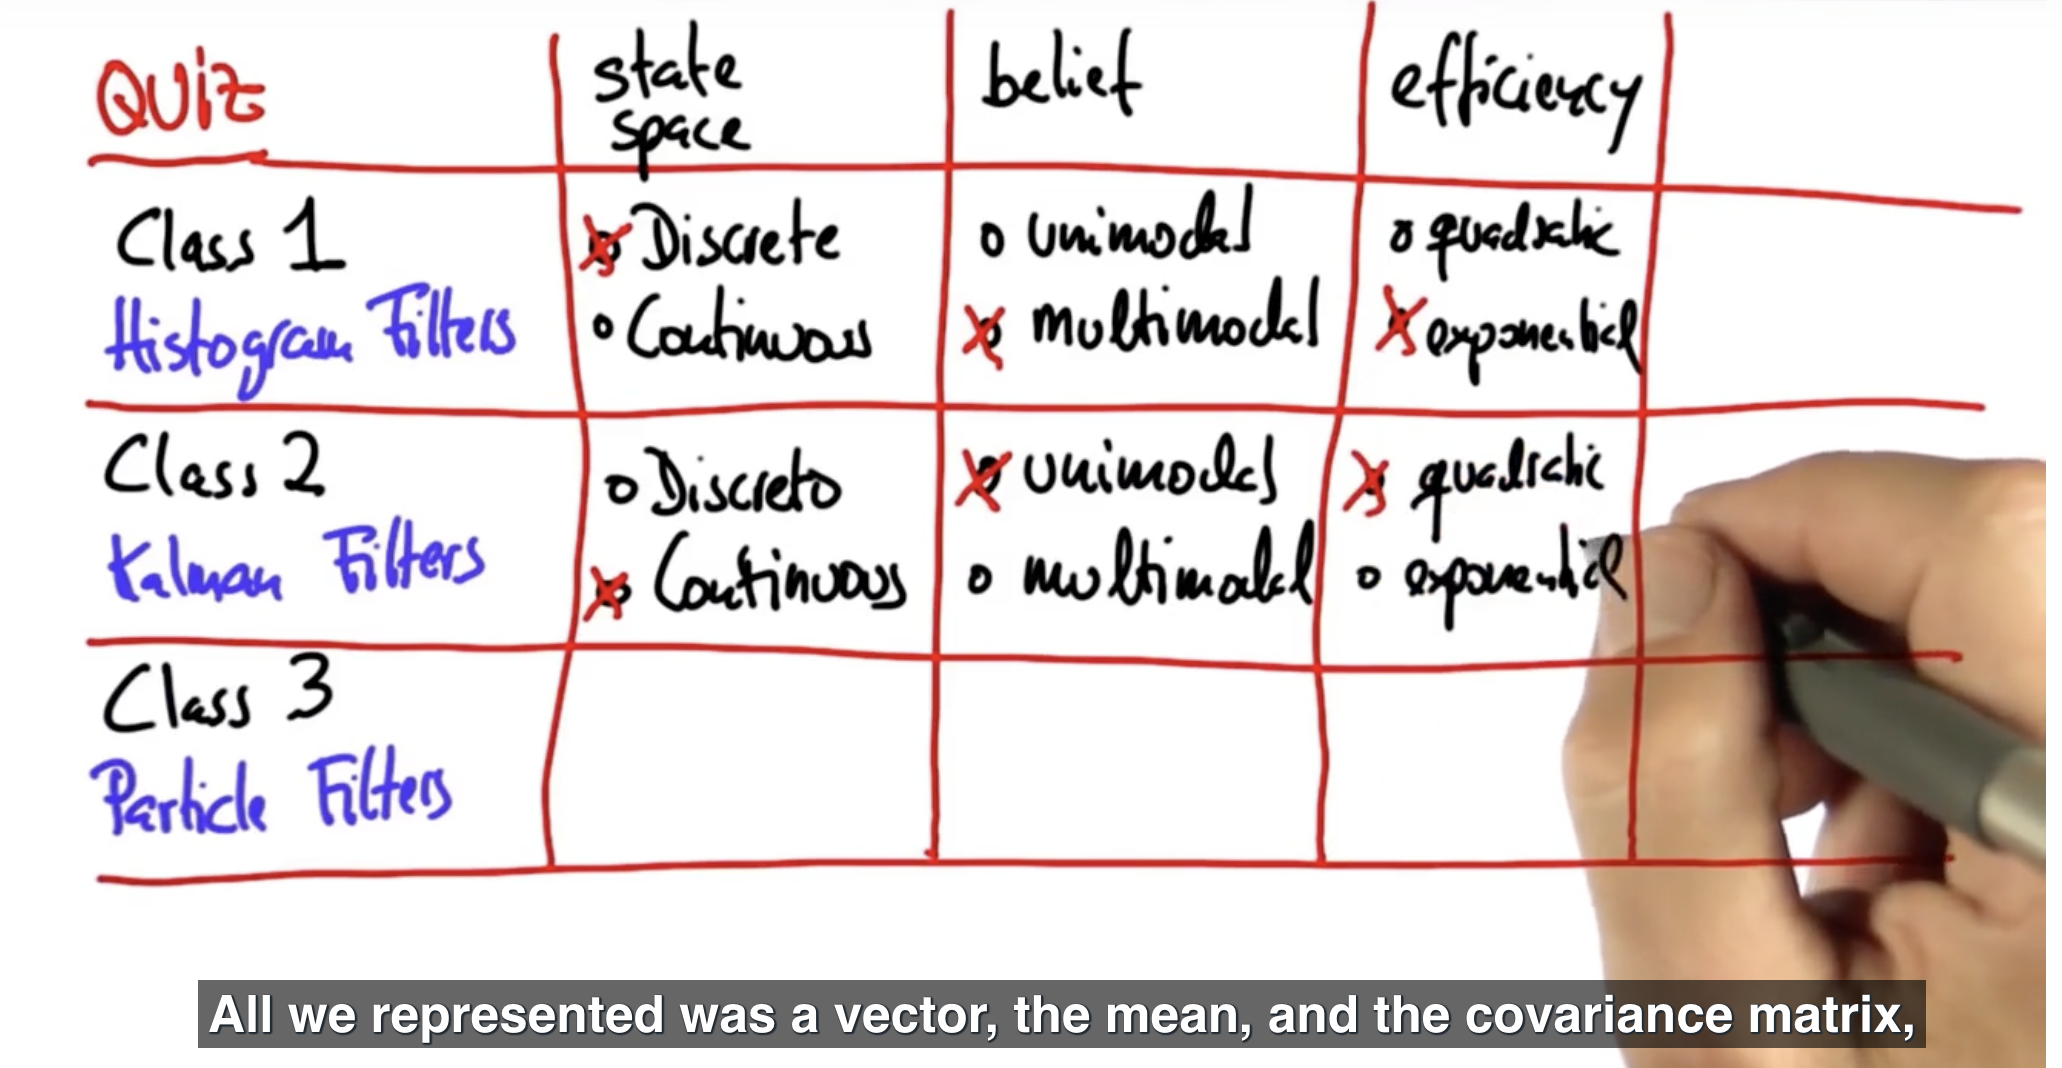 QUiz
state
space
belief
efficiency
Class 1
Histogram Filters
Discrete
Continuous
unimodal
multimodal
quadratic
exponential
Class 2
Kalman Filters
Discrete
Continuous
unimodal
multimodal
quadratic
exponential
Class 3
Particle Filters
All we represented was a vector, the mean, and the covariance matrix,